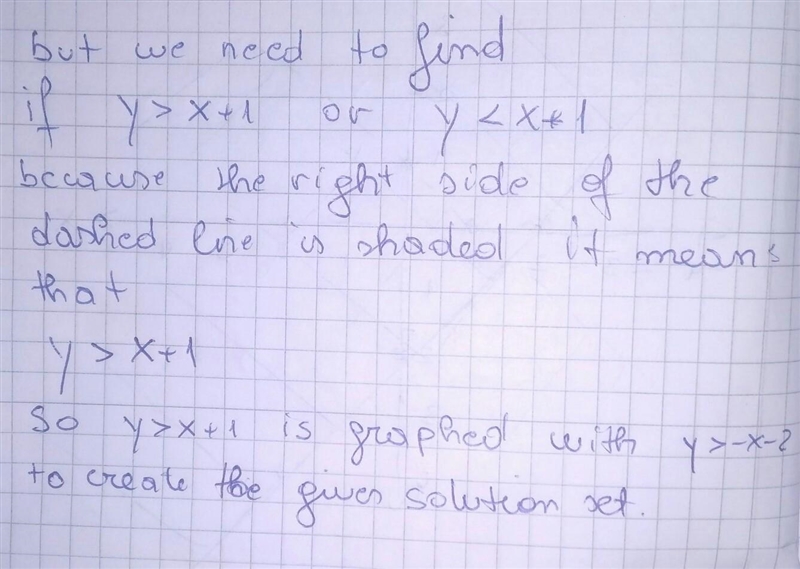 but we need to find
if y > x + 1 or y < x + 1
because the right side of the
dashed line is shaded it means
that
y > x + 1
so y > x + 1 is graphed with y > -x - 2
to create the given solution set.